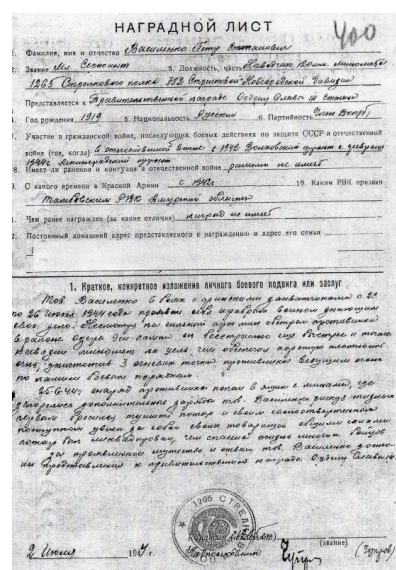 НАГРАДНОЙ ЛИСТ
400
1. Фамилия, имя и отчество Василенко Петр
2. Звание Мл. Сержант 3. Должность, часть Наводчик 82мм. миномета
1265 Стрелкового полка 382 Стрелковой Новгородской дивизии
Представляется к Правительственной награде Ордену Славы III степени
Год рождения 1919 5. Национальность Русский 6. Партийность Член ВКП(б)
Участие в гражданской войне, последующих боевых действиях по защите СССР и отечественной
войне (где, когда) в отечественной войне с 1942 Волховский фронт с февраля
1944г Ленинградский фронт
8. Имеет ли ранения и контузии в отечественной войне ранений не имеет
9. С какого времени в Красной Армии с 1942г 10. Каким РВК призван
Тамбовским РВК Амурской области
Чем ранее награжден (за какие отличия) наград не имеет
2. Постоянный домашний адрес представляемого к награждению и адрес его семьи
1. Краткое, конкретное изложение личного боевого подвига или заслуг
Тов. Василенко в боях с финскими захватчиками с 23
по 26 июня 1944 года проявил себя храбрым воином знающим
свое дело. Несмотря на сильный арт. мин обстрел противника
в районе озера он бесстрашно еще быстрее и точнее
наводил миномет на цель чем обеспечил хорошую плотность
огня, уничтожив 3 огневых точки противника ведущих огонь
по нашим боевым порядкам.
25.6.44г снаряд противника попал в ящик с минами, где
дополнительные заряды тов. Василенко рискуя жизнью
первым бросился тушить пожар и своим самоотверженным
поступком увлек за собой своих товарищей общими силами
пожар был ликвидирован, чем спасена жизнь многих бойцов
За проявленное мужество и отвагу тов. Василенко достоин
представления к правительственной награде Ордену Славы III ст.
1265 СТРЕЛ
Командир
Подполковник
(звание)
2 Июля 1944 г. (Чупров)